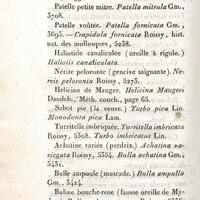 Patelle petite mitre. Patella mitrula Gm.,
3708.
Patelle voûtée. Patella fornicata Gm.,
3693. — Crapidula fornicata Roissy, hist.
nat. des mollusques, 5238.
Haliotide canaliculée (oreille à rigole.)
Haliotis canaliculata.
Nérite peloronte (gencive saignante). Ne-
reis peloronta Roissy, 5273.
Helicine de Mauger. Helicina Maugers
Daudeb., Méth. conch., page 65.
Sabot pie (la veuve.) Turbo pica Lin.
Monodonta pica Lam.
Turritelle imbriquée. Turritella imbricata
Roissy, 5308. Turbo imbricatus Lin.
Achatine variée (perdrix.) Achatina va-
riegata Roissy, 5354. Bulla achatina Gm.,
3431.
Bulle ampoule (muscade.) Bulla ampulla
Gm., 3424.
Buline bouche-rose (fausse oreille de My-